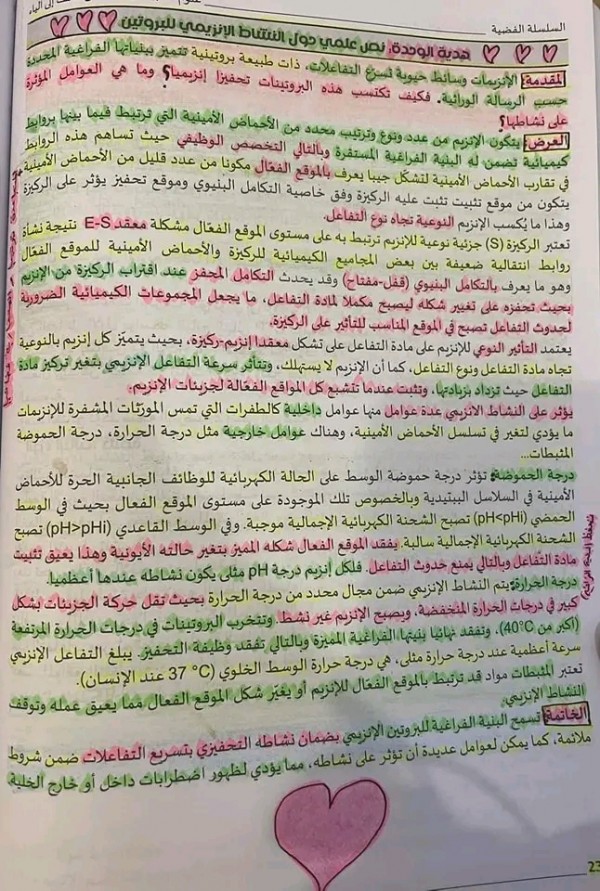 السلسلة الفضية
هدية الوحدة: نص علمي حول النشاط الإنزيمي للبروتين
المقدمة: الإنزيمات وسائط حيوية تسرع التفاعلات، ذات طبيعة بروتينية تتميز ببنياتها الفراغية المحددة
حسب الرسالة الوراثية. فكيف تكتسب هذه البروتينات تحفيزا إنزيميا؟ وما هي العوامل المؤثرة
على نشاطها؟
العرض: يتكون الإنزيم من عدد ونوع وترتيب محدد من الأحماض الأمينية التي ترتبط فيما بينها بروابط
كيميائية تضمن له البنية الفراغية المستقرة وبالتالي التخصص الوظيفي حيث تساهم هذه الروابط
في تقارب الأحماض الأمينية لتشكل جيبا يعرف بالموقع الفعال مكونا من عدد قليل من الأحماض الأمينية
يتكون من موقع تثبيت تثبت عليه الركيزة وفق خاصية التكامل البنيوي وموقع تحفيز يؤثر على الركيزة
وهذا ما يُكسب الإنزيم النوعية تجاه نوع التفاعل.
تعتبر الركيزة (S) جزئية نوعية للإنزيم ترتبط به على مستوى الموقع الفعال مشكلة معقد E-S نتيجة نشأة
روابط انتقالية ضعيفة بين بعض المجاميع الكيميائية للركيزة والأحماض الأمينية للموقع الفعال
وهو ما يعرف بالتكامل البنيوي (قفل-مفتاح) وقد يحدث التكامل المحفز عند اقتراب الركيزة من الإنزيم
بحيث تحفزه على تغيير شكله ليصبح مكملا لمادة التفاعل، ما يجعل المجموعات الكيميائية الضرورية
لحدوث التفاعل تصبح في الموقع المناسب للتأثير على الركيزة.
يعتمد التأثير النوعي للإنزيم على مادة التفاعل على تشكل معقدا إنزيم-ركيزة، بحيث يتميز كل إنزيم بالنوعية
تجاه مادة التفاعل ونوع التفاعل، كما أن الإنزيم لا يستهلك، وتتأثر سرعة التفاعل الإنزيمي بتغير تركيز مادة
التفاعل حيث تزداد بزيادتها، وتثبت عندما تتشبع كل المواقع الفعالة لجزيئات الإنزيم.
يؤثر على النشاط الانزيمي عدة عوامل منها عوامل داخلية كالطفرات التي تمس المورثات المشفرة للإنزيمات
ما يؤدي لتغير في تسلسل الأحماض الأمينية، وهناك عوامل خارجية مثل درجة الحرارة، درجة الحموضة
المثبطات...
درجة الحموضة: تؤثر درجة حموضة الوسط على الحالة الكهربائية للوظائف الجانبية الحرة للأحماض
الأمينية في السلاسل الببتيدية وبالخصوص تلك الموجودة على مستوى الموقع الفعال بحيث في الوسط
الحمضي (pH<pHi) تصبح الشحنة الكهربائية الإجمالية موجبة. وفي الوسط القاعدي (pH>pHi) تصبح
الشحنة الكهربائية الإجمالية سالبة. يفقد الموقع الفعال شكله المميز بتغير حالته الأيونية وهذا يعيق تثبيت
مادة التفاعل وبالتالي يمنع حدوث التفاعل. فلكل إنزيم درجة pH مثلى يكون نشاطه عندها أعظميا.
درجة الحرارة: يتم النشاط الإنزيمي ضمن مجال محدد من درجة الحرارة بحيث تقل حركة الجزيئات بشكل
كبير في درجات الحرارة المنخفضة، ويصبح الإنزيم غير نشط. وتتخرب البروتينات في درجات الحرارة المرتفعة
(أكبر من 40°C)، وتفقد نهائيا بنيتها الفراغية المميزة وبالتالي تفقد وظيفة التحفيز. يبلغ التفاعل الإنزيمي
سرعة أعظمية عند درجة حرارة مثلى، هي درجة حرارة الوسط الخلوي (37 °C عند الإنسان).
تعتبر المثبطات مواد قد ترتبط بالموقع الفعال للإنزيم أو يغير شكل الموقع الفعال مما يعيق عمله وتوقف
النشاط الإنزيمي.
الخاتمة: تسمح البنية الفراغية للبروتين الإنزيمي بضمان نشاطه التحفيزي بتسريع التفاعلات ضمن شروط
ملائمة، كما يمكن لعوامل عديدة أن تؤثر على نشاطه، مما يؤدي لظهور اضطرابات داخل أو خارج الخلية.
23